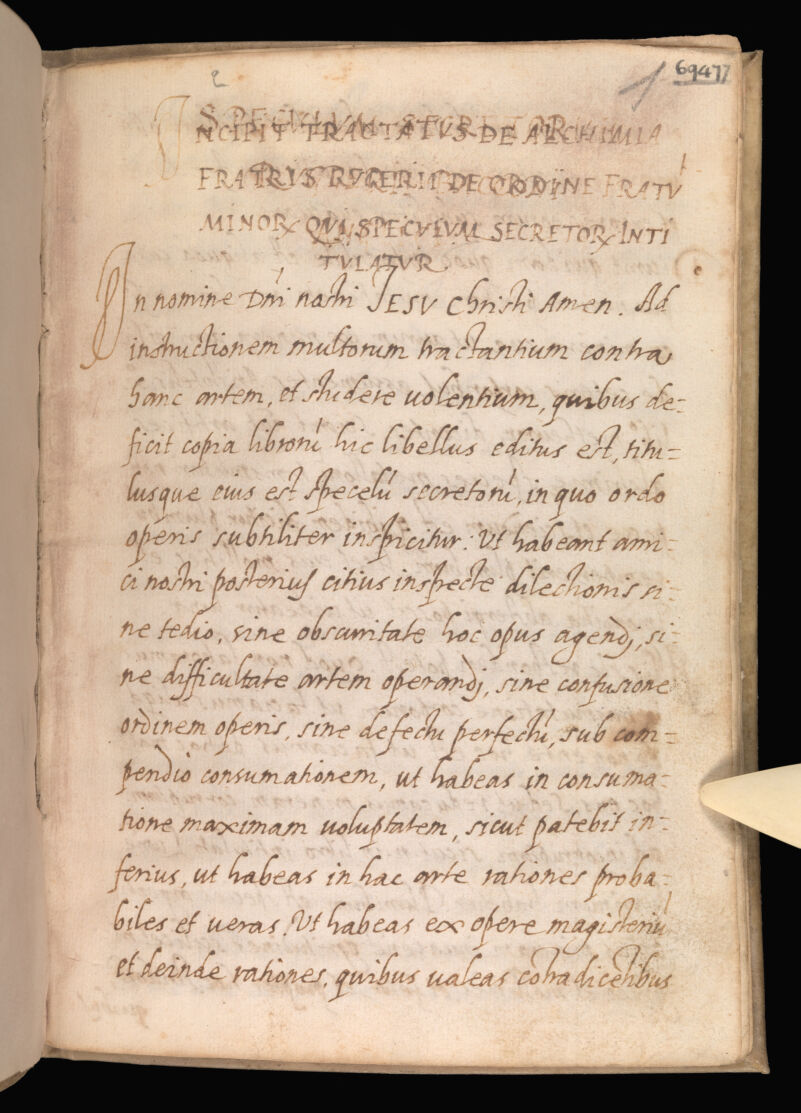 69477
INCIPIT TRACTATVS DE ALCHIMIA
FRATRIS ROGERII DE ORDINE FRATŪ
MINORꝝ QVI SPECVLVM SECRETORꝝ INTI
TVLATVR
In nomine Dn̄i nostri JESV Christi Amen. Ad
instructionem multorum tractantium contra
hanc artem, et studere uolentium, quibus de=
ficit copia librorū hic libellus editus est, titu=
lusque eius est specelū secretorū, in quo ordo
operis subtiliter inspicitur: Ut habeant ami=
ci nostri posterius citius inspecte dilectionis si=
ne tedio, sine obscuritate hoc opus agendj, si=
ne difficultate artem operandj, sine confusione
ordinem operis, sine defectu perfectū, sub com=
pendio consumationem, ut habeas in consuma=
tione maximam uoluptatem, sicut patebit in=
ferius, ut habeas in hac arte rationes proba=
biles et ueras. Ut habeas ex opere magisteriū
et deinde rationes, quibus ualeas cōtradicētibus